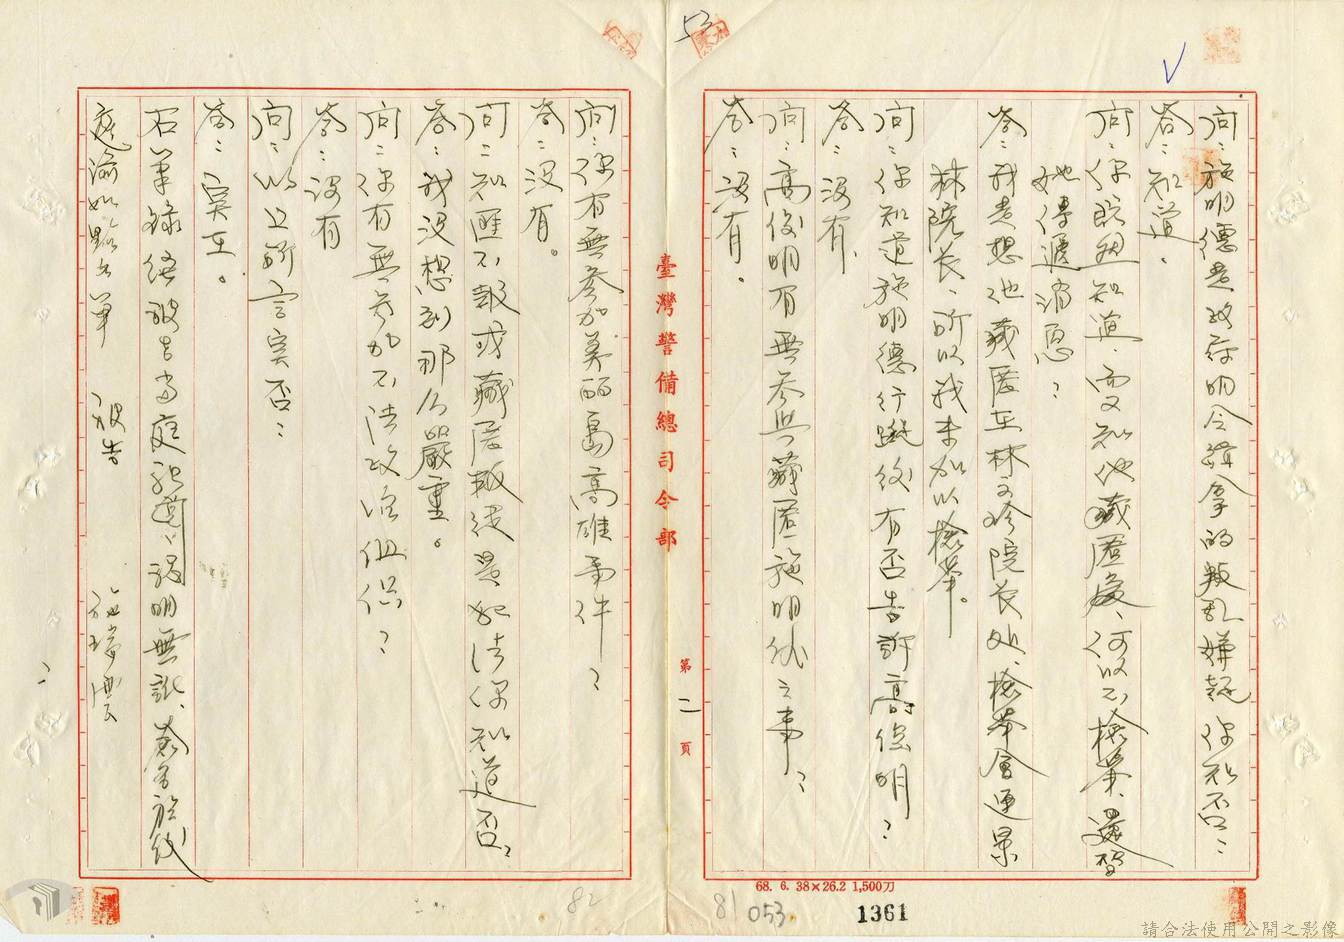 53
問：施明德是政府明令緝拿的叛亂嫌疑你知否？
答：知道。
問：你既然知道，又知他藏匿處、何以不檢舉、還替
她傳遞消息？
答：我是想他藏匿在林文珍院長处、檢舉會連累
林院長、所以我未加以檢舉。
問：你知道施明德行蹤後有否告訴高俊明？
答：沒有，
問：高俊明有無參與藏匿施明德之事？
答：沒有。
臺灣警備總司令部
第二頁
問：你有無參加美麗島高雄事件？
答：沒有。
問：知匪不報或藏匿叛徒是犯法你知道否？
答：我沒想到那么嚴重。
問：你有無參加不法政治組織？
答：沒有
問：以上所言实否？
答：实在。
右筆錄經被告當庭 明無訛、簽名於后
庭諭如點名單 被告 施瑞雲
82
81
053
68. 6. 38×26.2 1,500刀
1361
請合法使用公開之影像